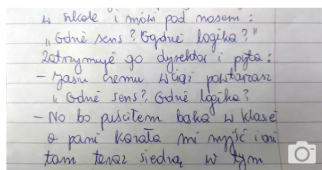 w szkole i mówi pod nosem:
"Gdzie sens? Gdzie logika?"
Zatrzymuje go dyrektor i pyta:
- Jasiu czemu w ciąż powtarzasz
"Gdzie sens?, Gdzie logika?
- No bo puściłem bąka w klasie
a pani kazała mi wyjść i oni
tam teraz siedzą w tym